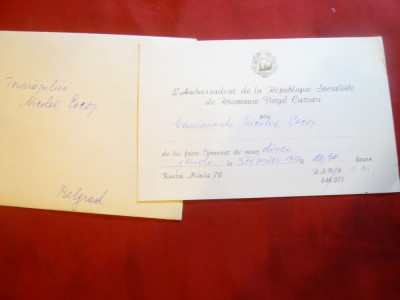 Tovarășului
Nicolae Cocoș
Belgrad
L'Ambassadeur de la République Socialiste
de Roumanie Virgil Cazacu
prie
Camarade Nicolae Cocoș
de lui faire l'honneur de venir dîner
jeudi le 3 19 à 19,30 heure
Kneza Miloša 70 R.S.V.P.
646 071